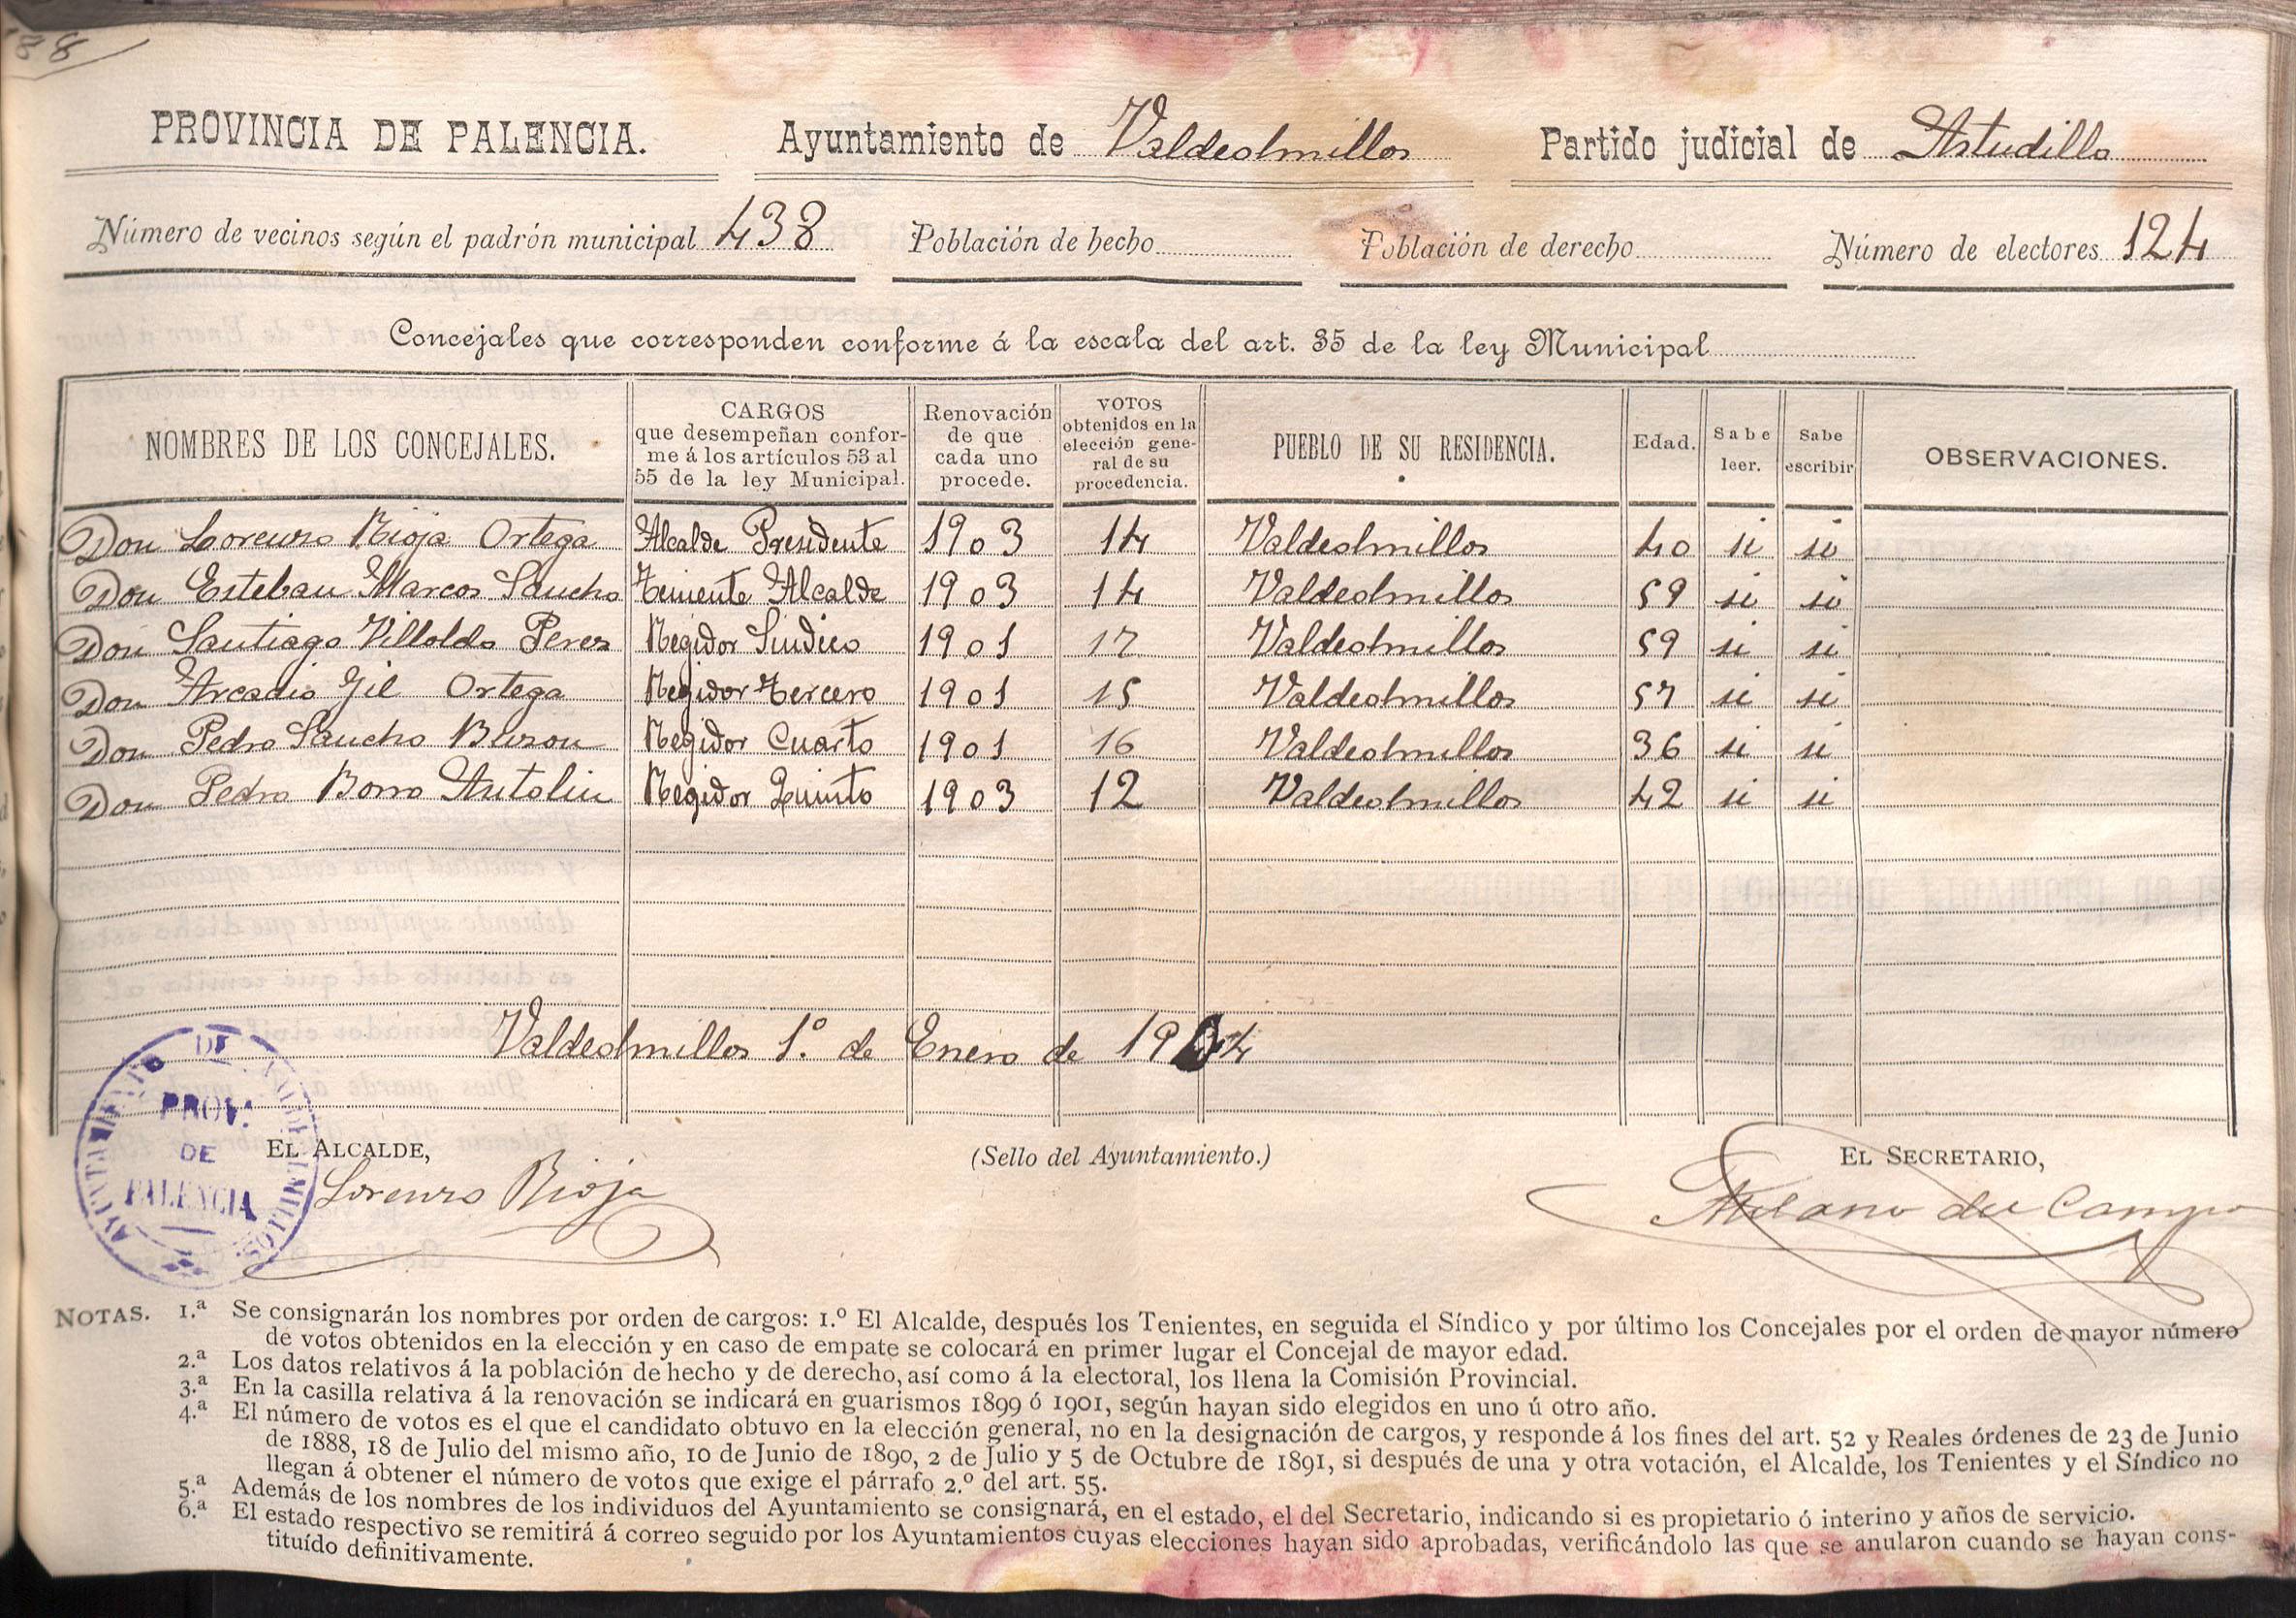 88
PROVINCIA DE PALENCIA. Ayuntamiento de Valdeolmillos Partido judicial de Astudillo
Número de vecinos según el padrón municipal 438 Población de hecho Población de derecho Número de electores 124
Concejales que corresponden conforme á la escala del art. 35 de la ley Municipal
NOMBRES DE LOS CONCEJALES. CARGOS que desempeñan confor- Renovación VOTOS PUEBLO DE SU RESIDENCIA. Edad. Sabe Sabe OBSERVACIONES.
me á los artículos 53 al de que obtenidos en la leer. escribir
55 de la ley Municipal. cada uno elección gene-
procede. ral de su
procedencia.
Don Lorenzo Rioja Ortega Alcalde Presidente 1903 14 Valdeolmillos 40 si si
Don Esteban Marcos Sancho Teniente Alcalde 1903 14 Valdeolmillos 59 si si
Don Santiago Villoldo Perez Regidor Sindico 1901 17 Valdeolmillos 59 si si
Don Arcadio Gil Ortega Regidor Tercero 1901 15 Valdeolmillos 57 si si
Don Pedro Sancho Buron Regidor Cuarto 1901 16 Valdeolmillos 36 si si
Don Pedro Borro Antolin Regidor Quinto 1903 12 Valdeolmillos 42 si si
Valdeolmillos 1.º de Enero de 1904
AYUNTAMIENTO DE VALDEOLMILLOS
PROV.
DE
PALENCIA
EL ALCALDE, (Sello del Ayuntamiento.) EL SECRETARIO,
Lorenzo Rioja del Campo
NOTAS. 1.ª Se consignarán los nombres por orden de cargos: 1.º El Alcalde, después los Tenientes, en seguida el Síndico y por último los Concejales por el orden de mayor número
de votos obtenidos en la elección y en caso de empate se colocará en primer lugar el Concejal de mayor edad.
2.ª Los datos relativos á la población de hecho y de derecho, así como á la electoral, los llena la Comisión Provincial.
3.ª En la casilla relativa á la renovación se indicará en guarismos 1899 ó 1901, según hayan sido elegidos en uno ú otro año.
4.ª El número de votos es el que el candidato obtuvo en la elección general, no en la designación de cargos, y responde á los fines del art. 52 y Reales órdenes de 23 de Junio
de 1888, 18 de Julio del mismo año, 10 de Junio de 1890, 2 de Julio y 5 de Octubre de 1891, si después de una y otra votación, el Alcalde, los Tenientes y el Síndico no
llegan á obtener el número de votos que exige el párrafo 2.º del art. 55.
5.ª Además de los nombres de los individuos del Ayuntamiento se consignará, en el estado, el del Secretario, indicando si es propietario ó interino y años de servicio.
6.ª El estado respectivo se remitirá á correo seguido por los Ayuntamientos cuyas elecciones hayan sido aprobadas, verificándolo las que se anularon cuando se hayan cons-
tituído definitivamente.